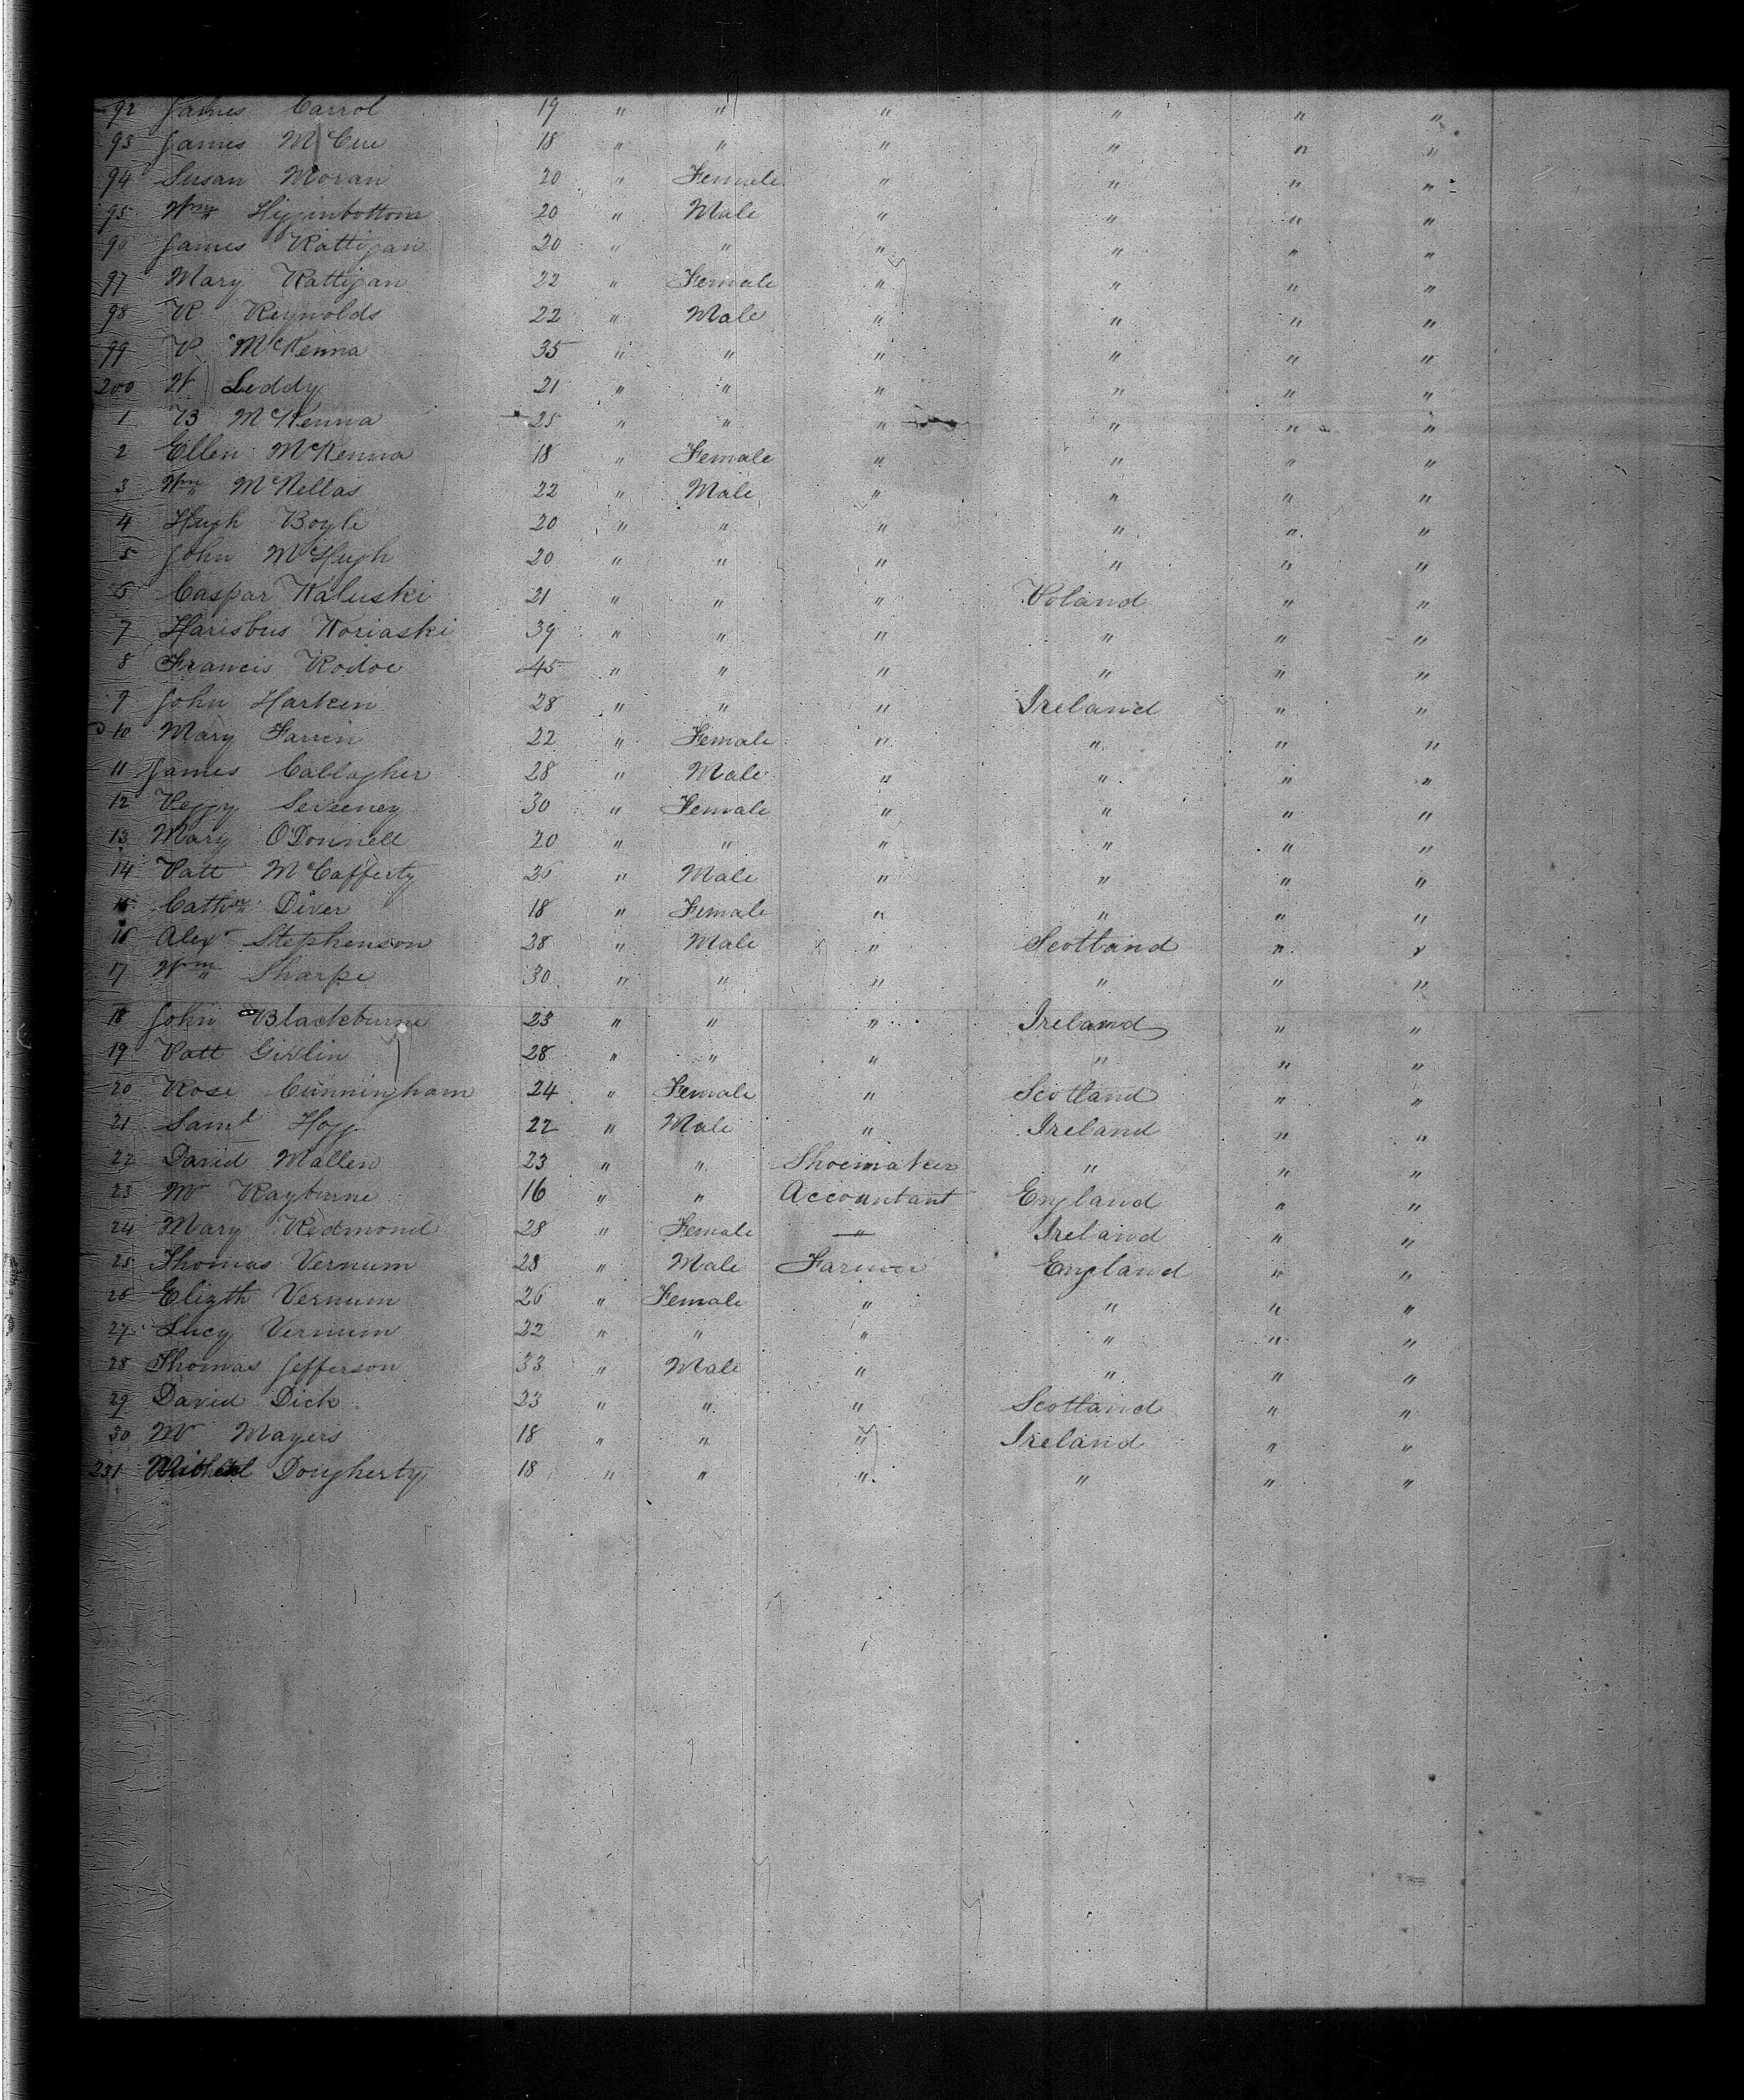 92 James Carrol 19 " " " " " "
93 James McCue 18 " " " " " "
94 Susan Moran 20 " Female " " " "
95 Wm Higginbottom 20 " Male " " " "
96 James Rattigan 20 " " " " " "
97 Mary Rattigan 22 " Female " " " "
98 R Reynolds 22 " Male " " " "
99 P McKenna 35 " " " " " "
200 W Leddy 21 " " " " " "
1 B McKenna 25 " " " " " "
2 Ellen McKenna 18 " Female " " " "
3 Wm McKellas 22 " Male " " " "
4 Hugh Boyle 20 " " " " " "
5 John McHugh 20 " " " " " "
6 Caspar Kaluski 21 " " " Poland " "
7 Harisbus Koriaski 39 " " " " " "
8 Francis Rodoc 45 " " " " " "
9 John Harken 28 " " " Ireland " "
10 Mary Farren 22 " Female " " " "
11 James Callagher 28 " Male " " " "
12 Peggy Seveeney 30 " Female " " " "
13 Mary O'Donnell 20 " " " " " "
14 Patt McCafferty 36 " Male " " " "
15 Cathn Diver 18 " Female " " " "
16 Alexr Stephenson 28 " Male " Scotland " "
17 Wm Sharpe 30 " " " " " "
18 John Blackburne 23 " " " Ireland " "
19 Patt Girlin 28 " " " " " "
20 Rose Cunningham 24 " Female " Scotland " "
21 Saml Hogg 22 " Male " Ireland " "
22 David Mallen 23 " " Shoemaker " " "
23 W Rayburne 16 " " Accountant England " "
24 Mary Redmond 28 " Female " Ireland " "
25 Thomas Vernum 28 " Male Farmer England " "
26 Elizth Vernum 26 " Female " " " "
27 Lucy Vernum 22 " " " " " "
28 Thomas Jefferson 33 " Male " " " "
29 David Dick 23 " " " Scotland " "
30 W Mayers 18 " " " Ireland " "
231 Dougherty 18 " " " " " "